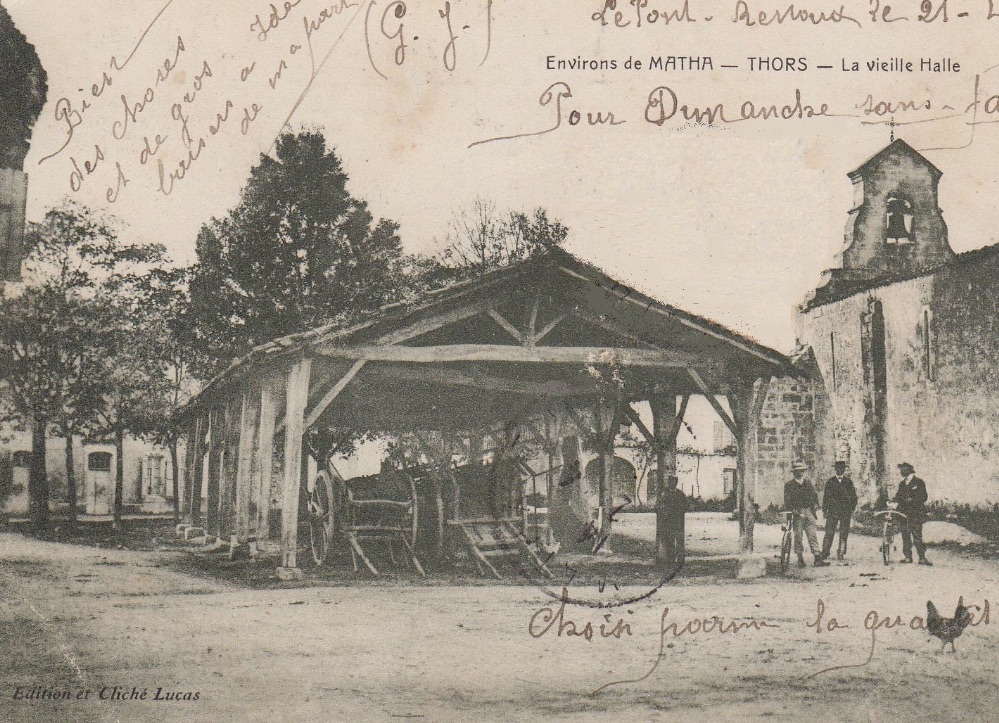 Bien
des choses
et de gros
baisers a Ida
de ma part
(G. J.)
Le Pont- le 21-
Environs de MATHA — THORS — La vieille Halle
Pour Dimanche sans-
Choisi parmi la
Edition et Cliché Lucas